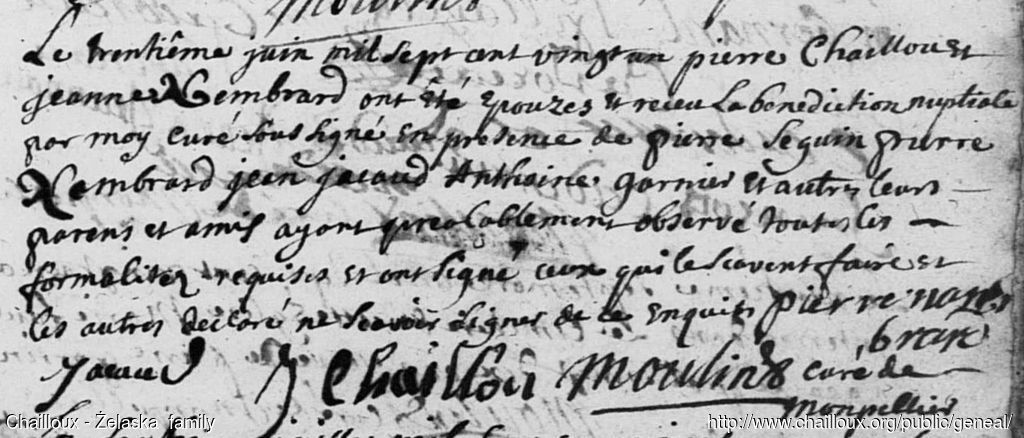 Moulins
Le trentiéme juin mil sept cent vingt un pierre Chaillou Et
jeanne Nembrard ont Eté Epouzes Et receu La benediction nuptiale
par moy curé soussigné En presence de pierre seguin pierre
Nambrard jean jacaud Anthoine garnier Et autres leurs
parens et amis ayant prealablement observé toutes les
formalitez requises Et ont signé ceux qui le scavent faire et
les autres declaré ne scavoir signer de ce Enquits pierre nam
brar
Jacaud J Chaillou Moulins curé de
Monpellier
Chailloux - Želaska family
http://www.chailloux.org/public/geneal/